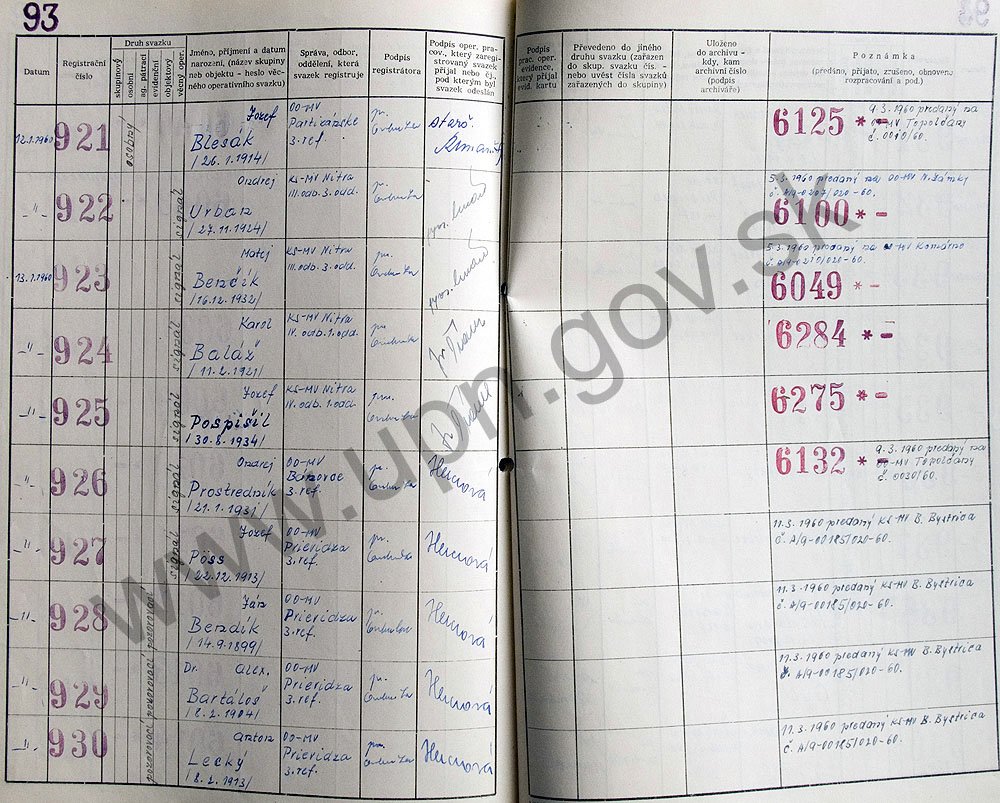 93
Datum
Registrační číslo
Druh svazku
skupinový
osobní
ag. pátrací
evidenční
objektový
věcný oper.
Jméno, příjmení a datum
narození, (název skupiny
neb objektu - heslo věc-
ného operativního svazku)
Správa, odbor,
oddělení, která
svazek registruje
Podpis
registrátora
Podpis oper. pra-
cov., který zaregi-
strovaný svazek
přijal nebo čj.,
pod kterým byl
svazek odeslán
Podpis
prac. oper.
evidence,
který přijal
evid. kartu
Převedeno do jiného
druhu svazku (zařazen
do skup. svazku čís. -
nebo uvést čísla svazků
zařazených do skupiny)
Uloženo
do archivu -
kdy, kam
archivní číslo
(podpis
archiváře)
Poznámka
(předáno, přijato, zrušeno, obnoveno
rozpracování a pod.)
12.1.1960 921 osobný
Jozef
Blesák
/26.1.1914/
OO-MV
Partizánske
3. ref.
6125 * -
9.3.1960 predaný na
OO-MV Topoľčany
č. 0010/60.
-"- 922 signál
Ondrej
Urban
/27.11.1924/
KS-MV Nitra
III. odb. 3. odd.
5.3.1960 predaný na OO-MV N. Zámky
č. A/9-0207/020-60.
6100 * -
13.1.1960 923 signál
Matej
Benďík
/16.12.1932/
KS-MV Nitra
III. odb. 3. odd.
5.3.1960 predaný na OO-MV Komárno
č. A/9-0210/020-60.
6049 * -
-"- 924 signál
Karol
Baláž
/11.2.1921/
KS-MV Nitra
IV. odb. 1. odd.
6284 * -
-"- 925 signál
Jozef
Pospíšil
/30.8.1934/
KS-MV Nitra
IV. odb. 1. odd.
6275 * -
-"- 926 signál
Ondrej
Prostredník
/21.1.1931/
OO-MV
Bánovce
3. ref.
Hercová
6132 * -
9.3.1960 predaný na
OO-MV Topoľčany
č. 0030/60.
-"- 927 signál
Jozef
Pöss
/22.12.1913/
OO-MV
Prievidza
3. ref.
Hercová
11.3.1960 predaný KS-MV B. Bystrica
č. A/9-00185/020-60.
-"- 928 pozorovací
Ján
Benďík
/14.9.1899/
OO-MV
Prievidza
3. ref.
Hercová
11.3.1960 predaný KS-MV B. Bystrica
č. A/9-00185/020-60.
-"- 929 pozorovací
Dr. Alex.
Bartáloš
/8.2.1904/
OO-MV
Prievidza
3. ref.
Hercová
11.3.1960 predaný KS-MV B. Bystrica
č. A/9-00185/020-60.
-"- 930 pozorovací
Anton
Lecký
/8.2.1913/
OO-MV
Prievidza
3. ref.
Hercová
11.3.1960 predaný KS-MV B. Bystrica
č. A/9-00185/020-60.
www.upn.gov.sk